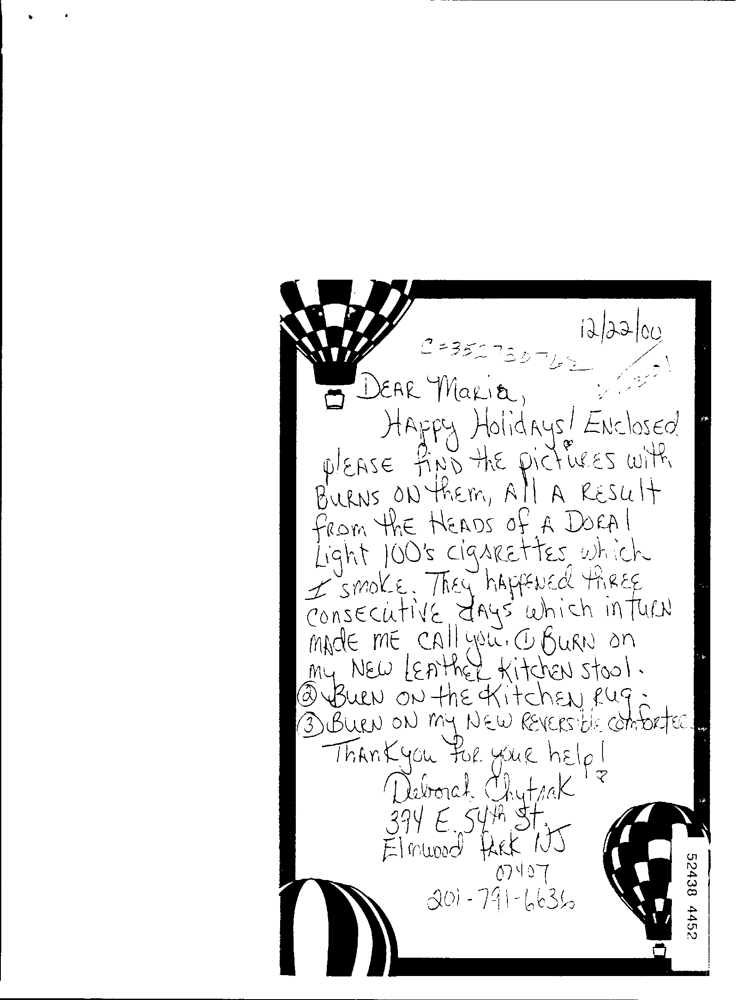 12/22/00
DEAR Maria,
HAppy Holidays! ENclosed
plEASE fiND the pictures with
BURNS ON them, All A Result
from the HEADS of A DORAl
Light 100's cigaRettes which
I smoke. They hAppened three
consecutive days which in tuRN
made me call you. ① BuRN on
my New LeatheR KitcheN stool.
② BuRN on the Kitchen Rug.
③ BuRN on my New ReveRsible comforter.
Thank you for your help!
Deborah Chytrak
394 E. 54th St.
Elmwood PaRk NJ
07407
201-791-6636
52438 4452